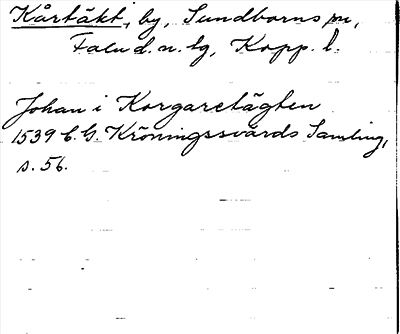 Kårtäkt, by, Sundborns sn,
Falu d. n. tg, Kopp. l.
Johan i Korgaretägten
1539 C. G. Kröningssvärds Samling,
s. 56.